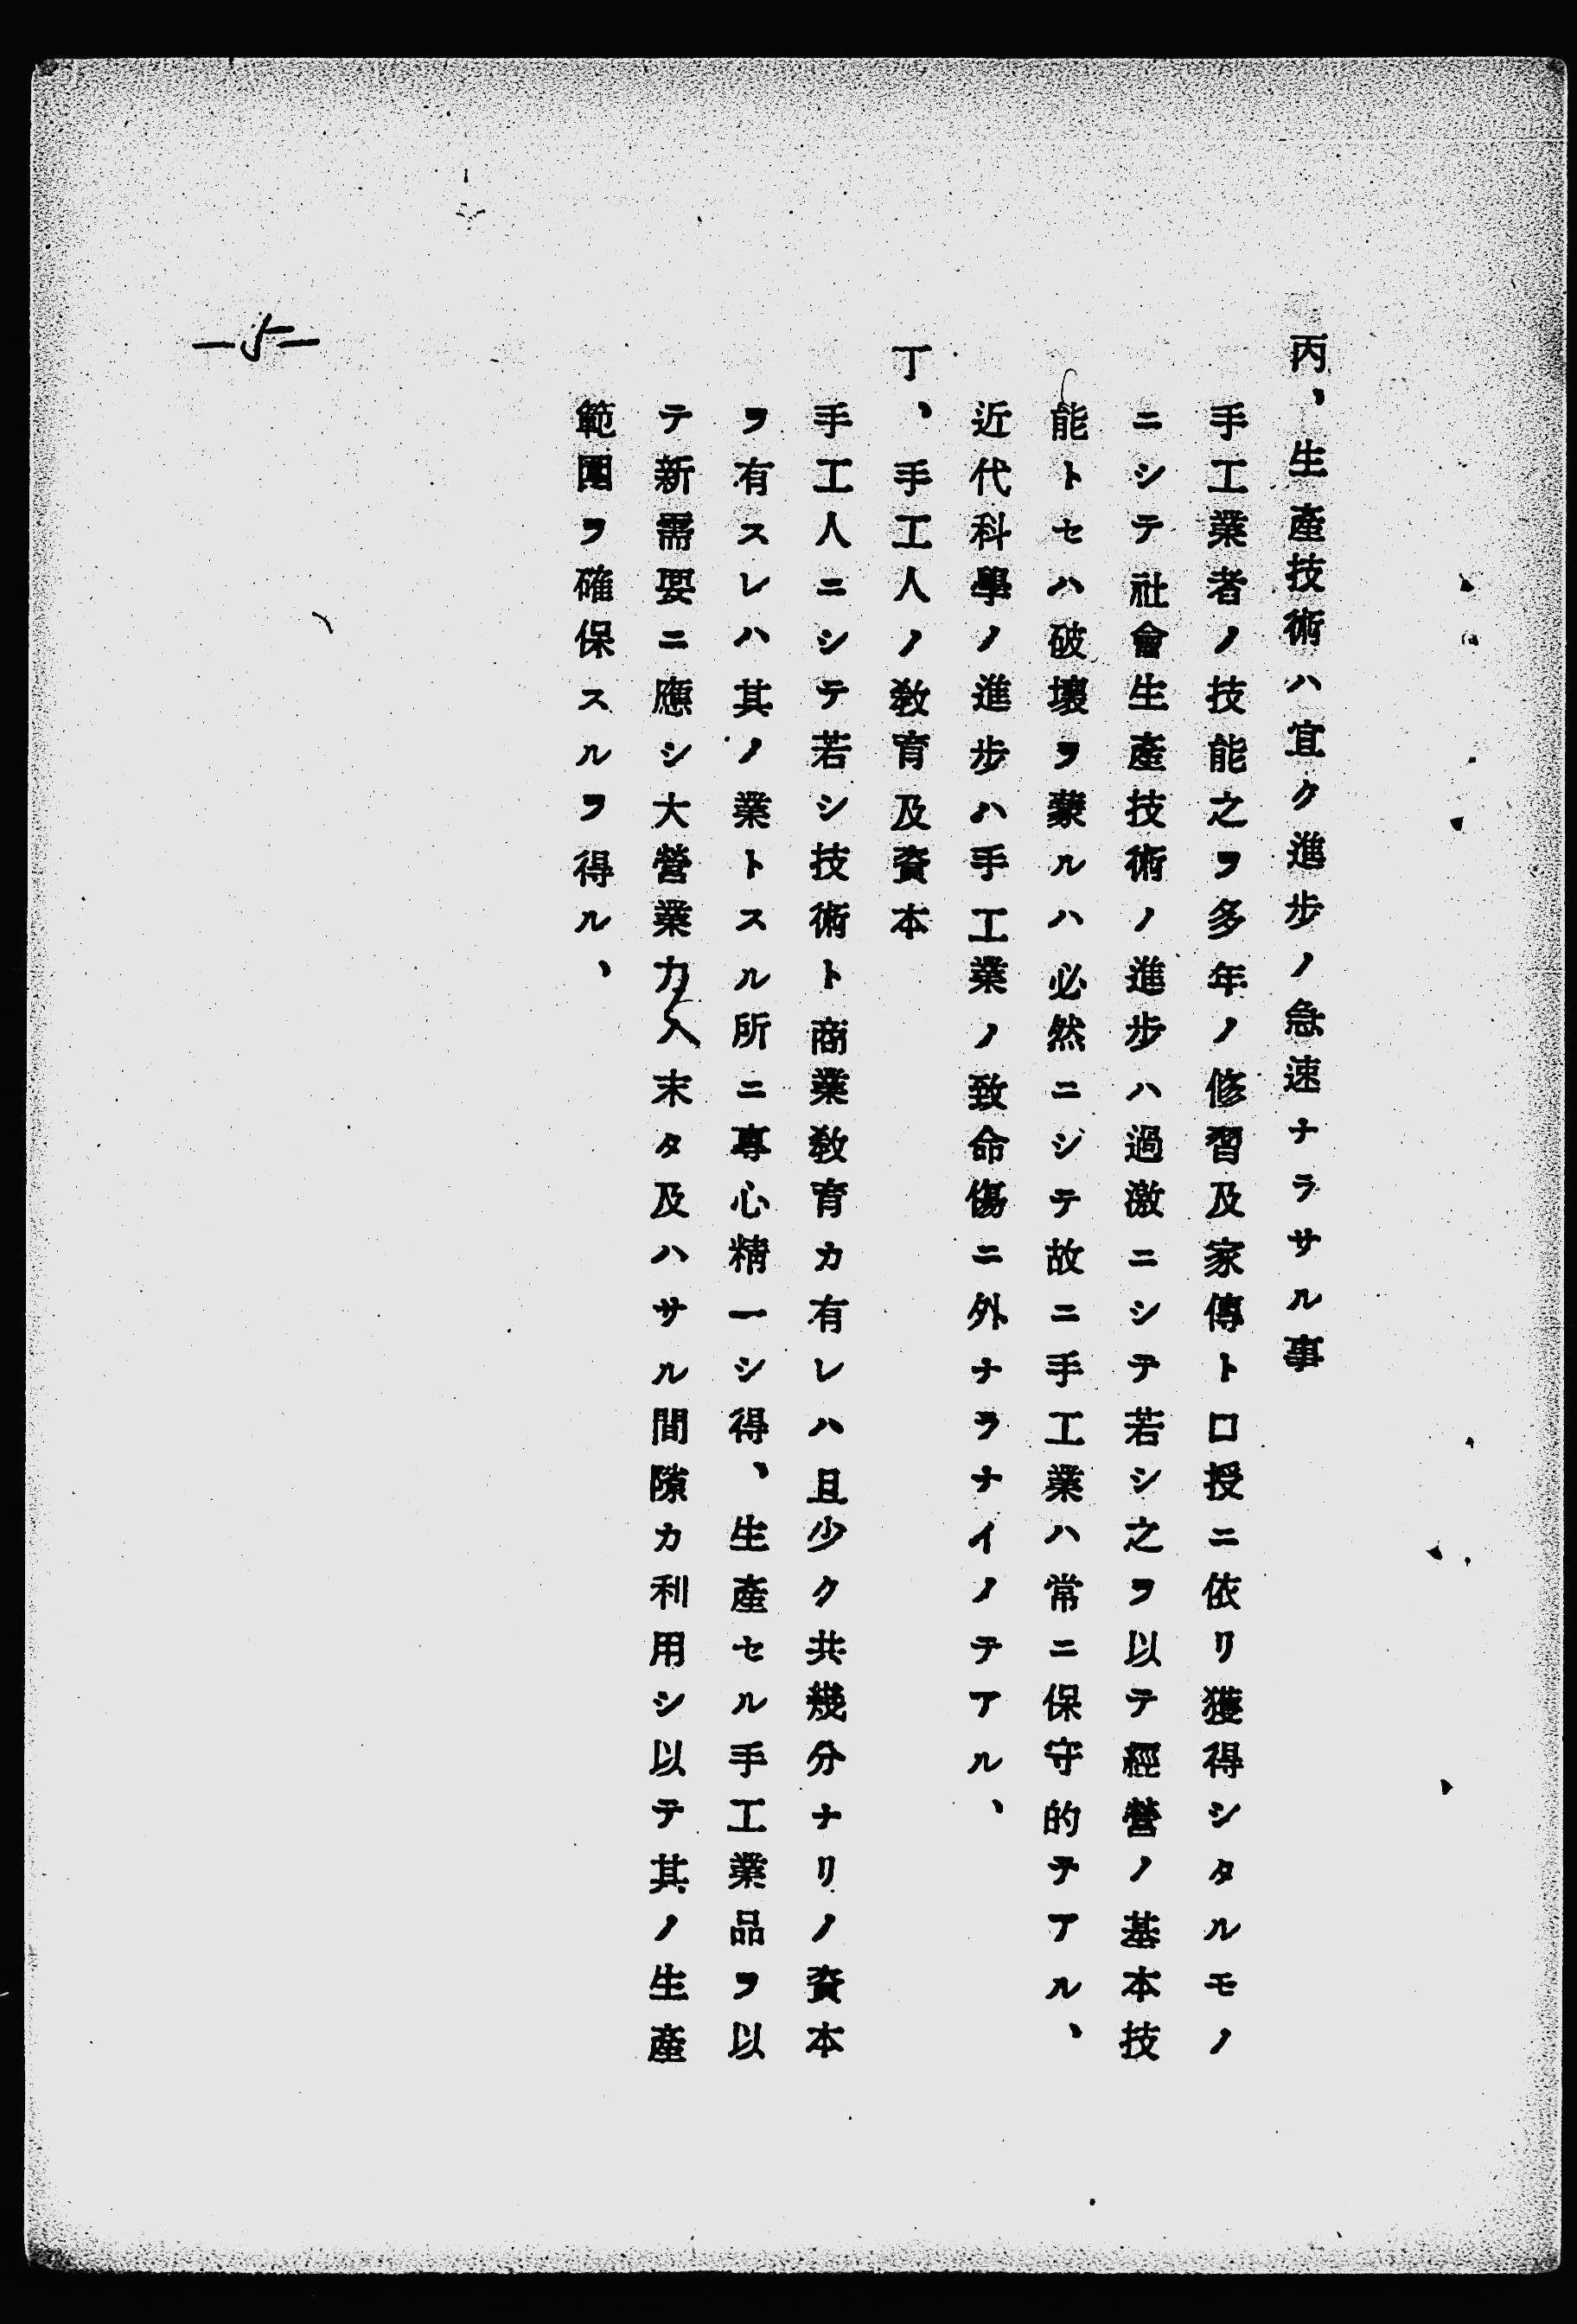 丙、生產技術ハ宜ク進步ノ急速ナラサル事
手工業者ノ技能之ヲ多年ノ修習及家傳ト口授ニ依リ獲得シタルモノ
ニシテ社會生產技術ノ進步ハ過激ニシテ若シ之ヲ以テ經營ノ基本技
能トセハ破壞ヲ蒙ルハ必然ニシテ故ニ手工業ハ常ニ保守的テアル、
近代科學ノ進步ハ手工業ノ致命傷ニ外ナラナイノテアル、
丁、手工人ノ教育及資本
手工人ニシテ若シ技術ト商業教育カ有レハ且少ク共幾分ナリノ資本
ヲ有スレハ其ノ業トスル所ニ專心精一シ得、生產セル手工業品ヲ以
テ新需要ニ應シ大營業力入末タ及ハサル間隙カ利用シ以テ其ノ生產
範圍ヲ確保スルヲ得ル、
—5—